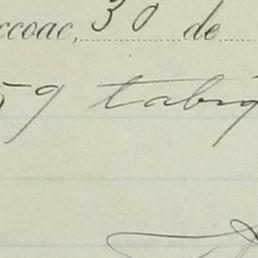 ccoac, 30 de
59 tabiq